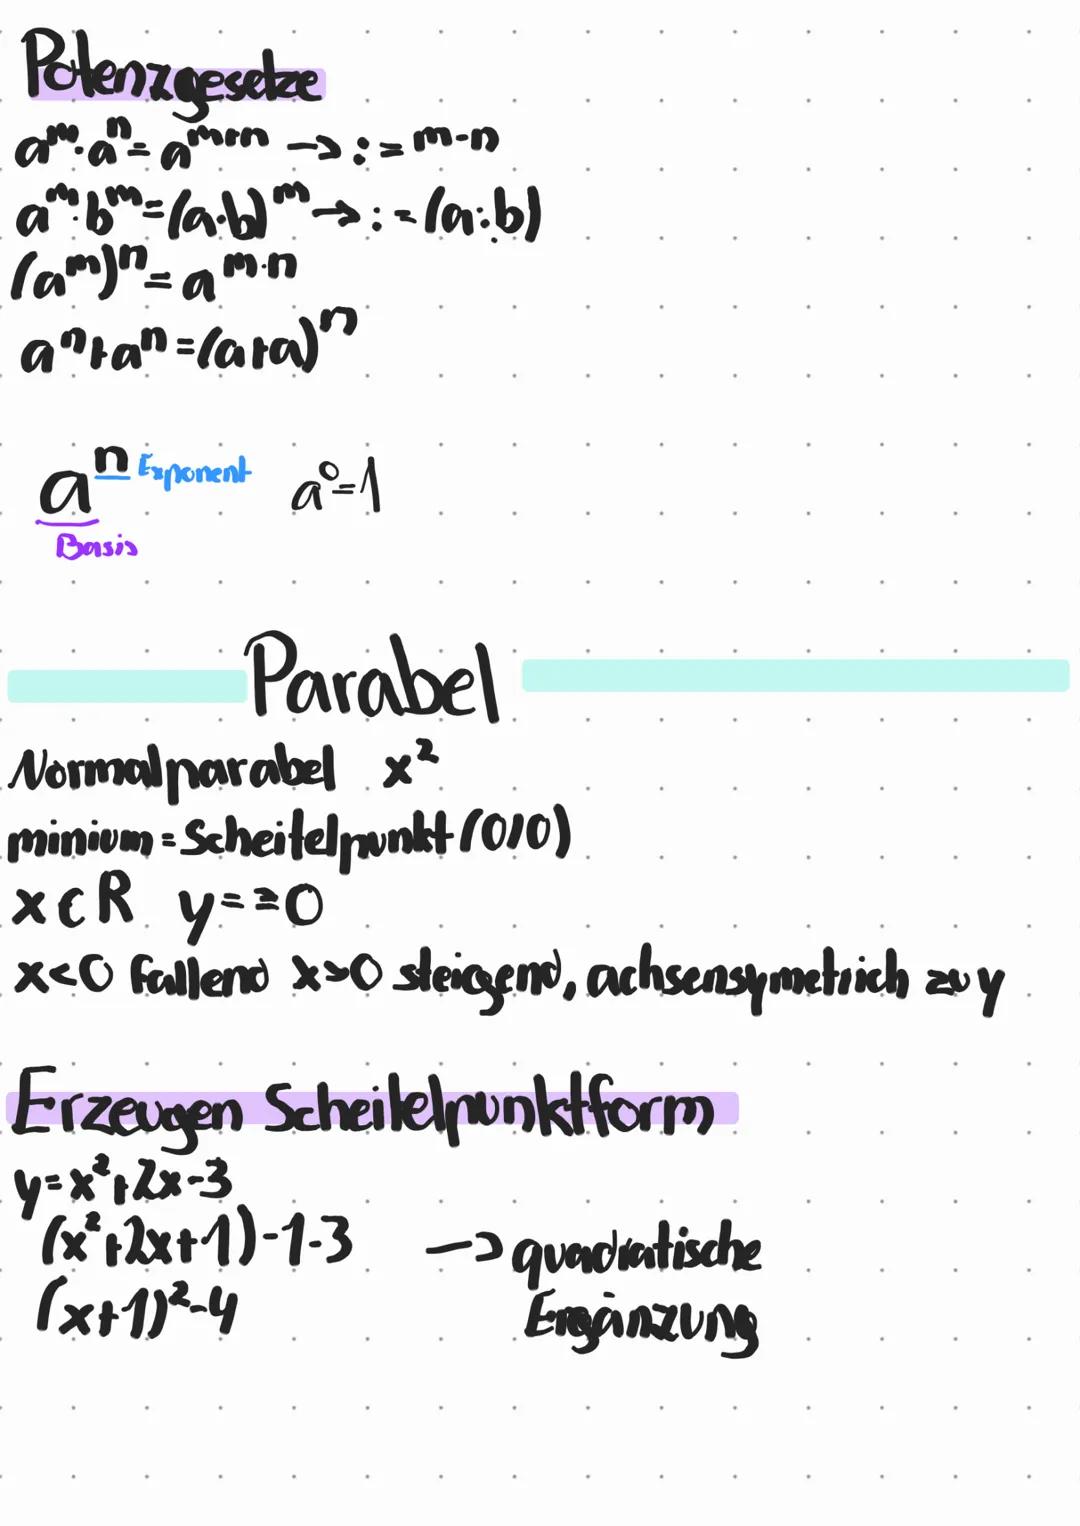 Potenzgesetze
a^m · a^n = a^(m+n) → : = m-n
a^m · b^m = (a·b)^m → : = (a:b)
(a^m)^n = a^(m·n)
a^n + a^n = (a+a)^n
a^n Exponent a^0 = 1
Basis
Parabel
Normalparabel x²
minium = Scheitelpunkt (0/0)
x ∈ R y = ≥ 0
x<0 fallend x>0 steigend, achsensymetrich zu y
Erzeugen Scheitelpunktform
y = x² + 2x - 3
(x² + 2x + 1) - 1 - 3 → quadratische
(x+1)² - 4 Ergänzung